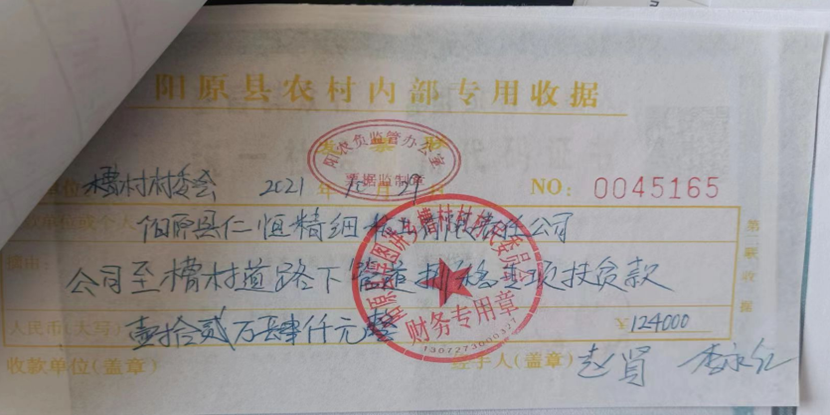 阳原县农村内部专用收据
阳农负监管办公室
票据监制章
单位 槽村村委会 2021 年 10 月 29 日 NO: 0045165
阳原县仁恒精细 有限责任公司
公司至槽村道路下管道 专项扶贫款
人民币(大写) 壹拾贰万肆仟元整 ¥124000
财务专用章
收款单位(盖章) 经手人(盖章) 赵贤
第二联收据